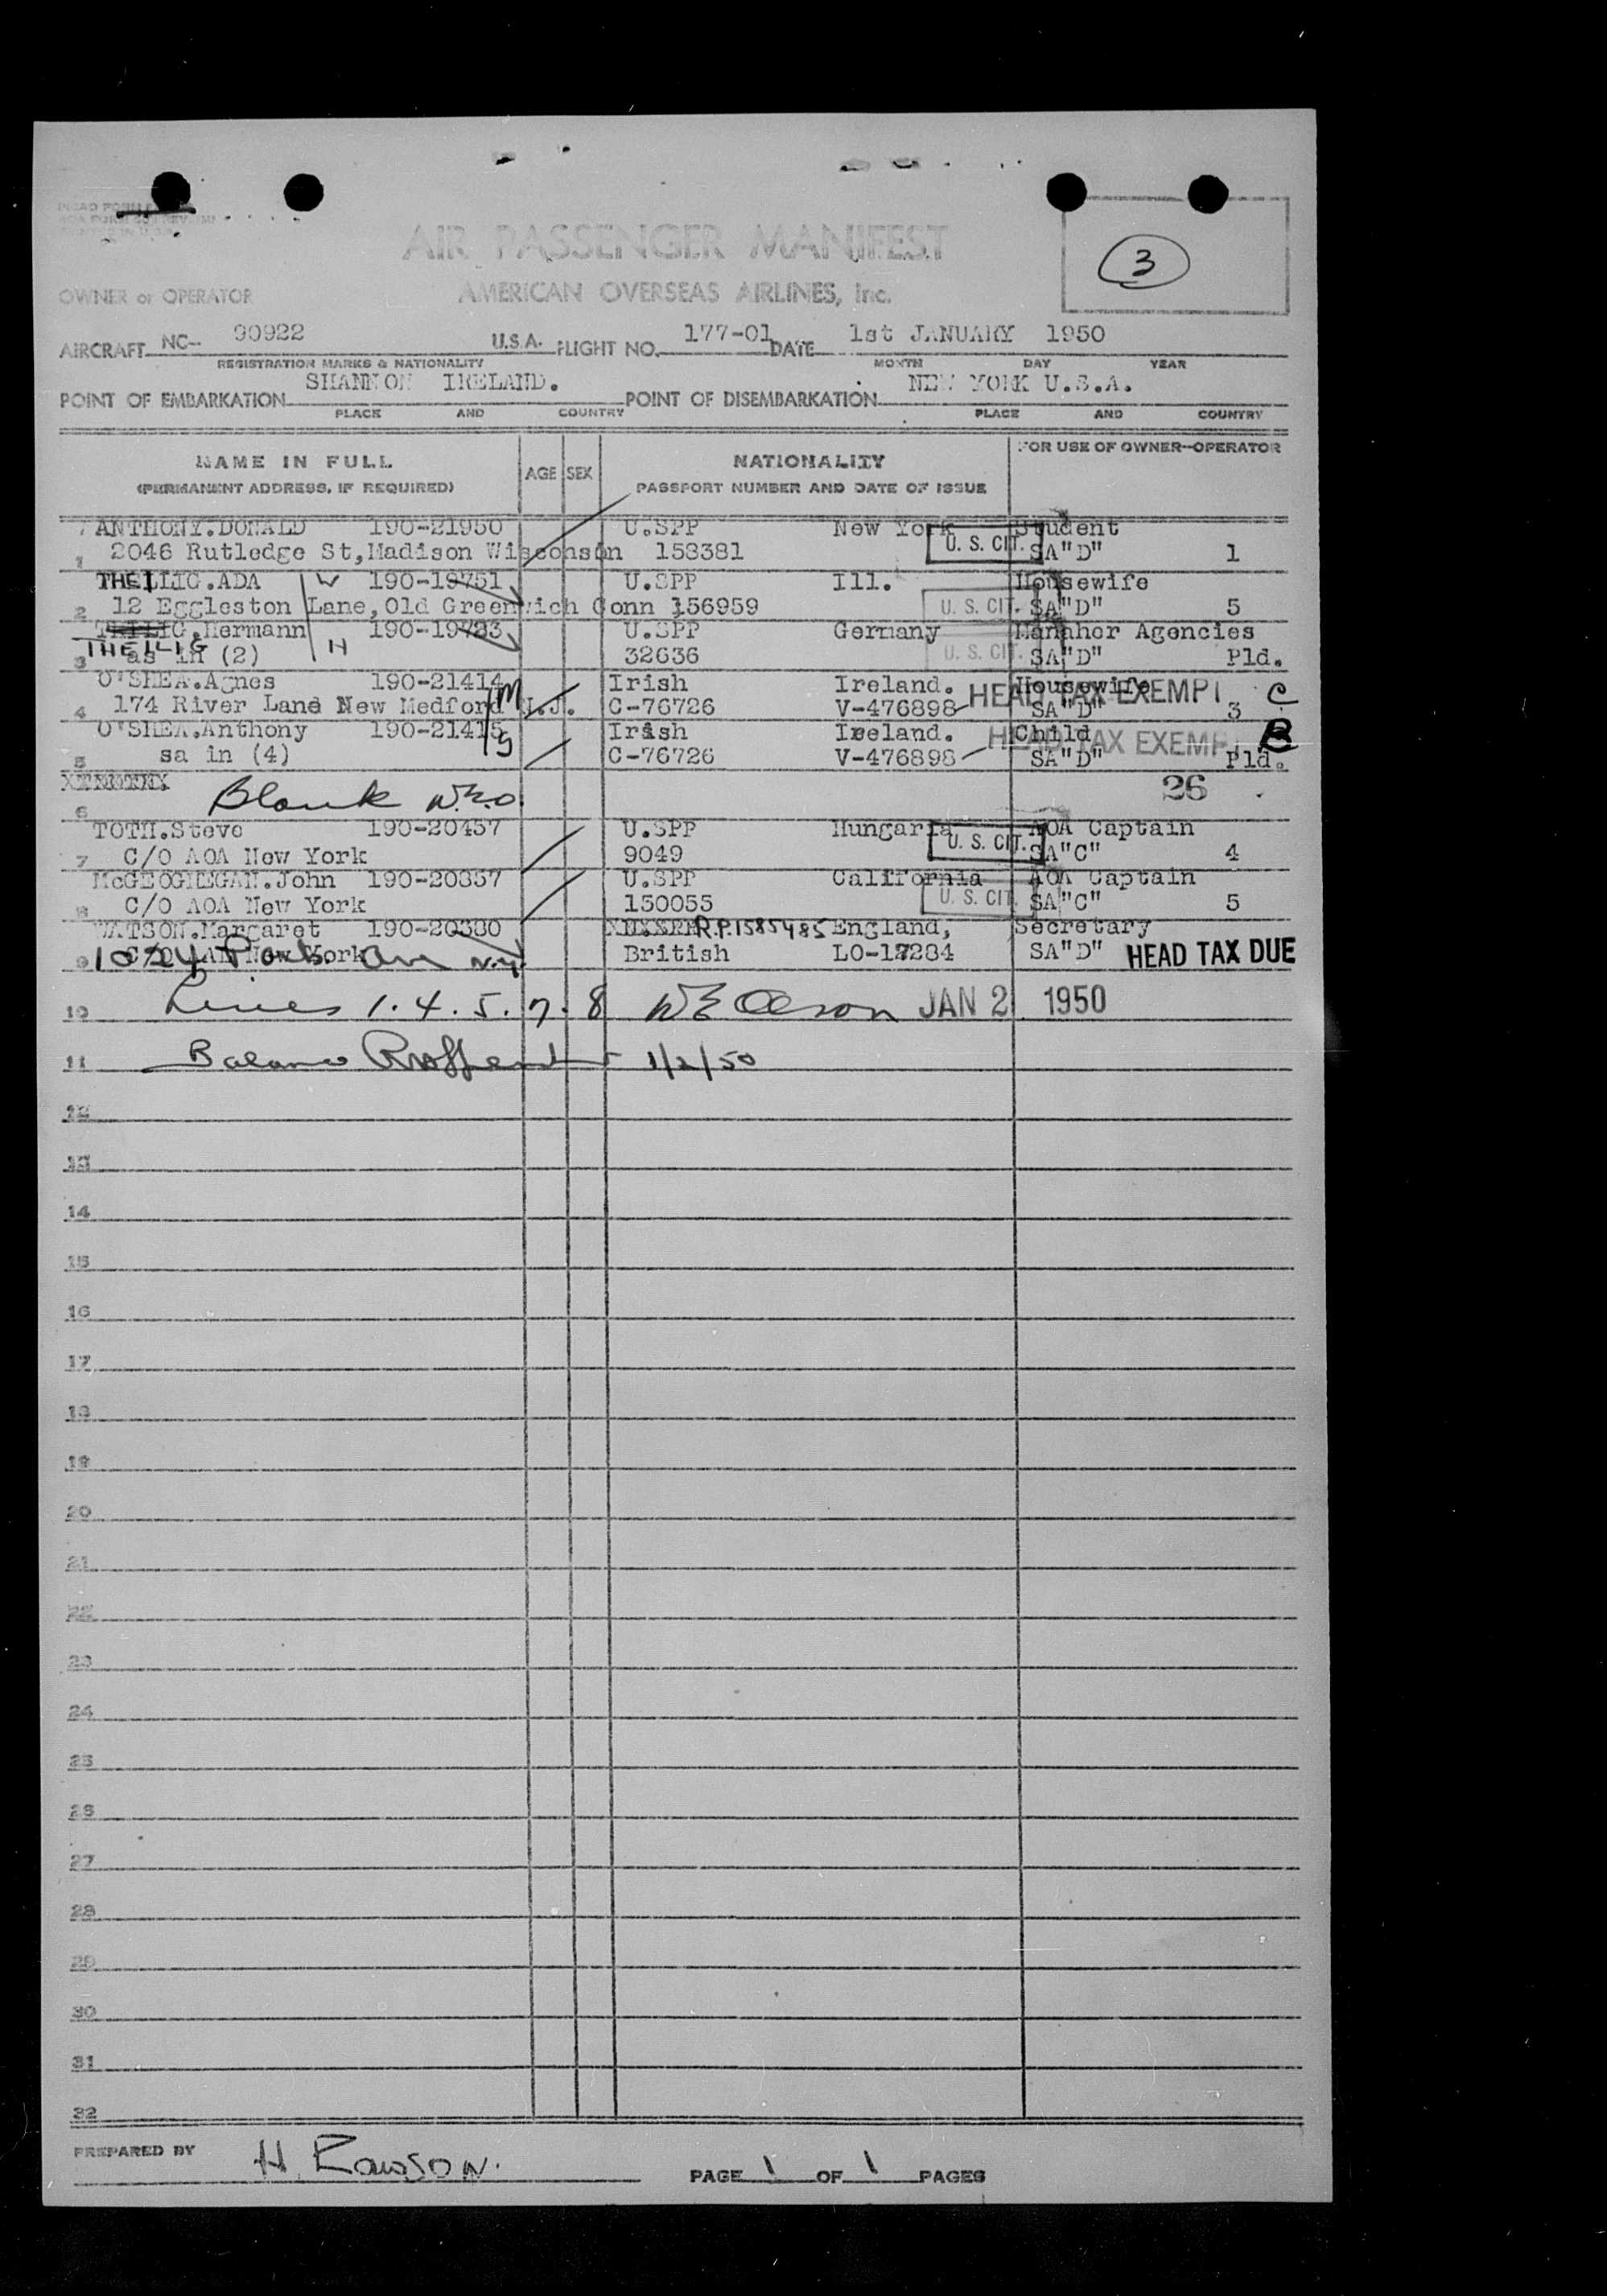 AIR PASSENGER MANIFEST
3
OWNER or OPERATOR AMERICAN OVERSEAS AIRLINES, Inc.
AIRCRAFT NC-- 90922 U.S.A. FLIGHT NO. 177-01 DATE 1st JANUARY 1950
REGISTRATION MARKS & NATIONALITY MONTH DAY YEAR
POINT OF EMBARKATION SHANNON IRELAND. POINT OF DISEMBARKATION NEW YORK U.S.A.
PLACE AND COUNTRY PLACE AND COUNTRY
NAME IN FULL AGE SEX NATIONALITY FOR USE OF OWNER--OPERATOR
(PERMANENT ADDRESS, IF REQUIRED) PASSPORT NUMBER AND DATE OF ISSUE
ANTHONY.DONALD 190-21950 U.SPP New York Student
1 2046 Rutledge St,Madison Wisconsin 158381 U. S. CIT. SA"D" 1
THEILIG.ADA W 190-19751 U.SPP Ill. Housewife
2 12 Eggleston Lane,Old Greenwich Conn 156959 U. S. CIT. SA"D" 5
THEILIG.Hermann H 190-19783 U.SPP Germany Agencies
3 as in (2) 32636 U. S. CIT. SA"D" Pld.
O'SHEA.Agnes 190-21414 M Irish Ireland. Housewife HEAD TAX EXEMPT C
4 174 River Lane New Medford N.J. C-76726 V-476898 SA"D" 3
O'SHEA.Anthony 190-21415 S Irish Ireland. Child HEAD TAX EXEMPT B
5 sa in (4) C-76726 V-476898 SA"D" Pld.
6 Blank W.E.O. 26
TOTH.Steve 190-20457 U.SPP Hungaria AOA Captain
7 C/O AOA New York 9049 U. S. CIT. SA"C" 4
McGEOGHEGAN.John 190-20357 U.SPP California AOA Captain
8 C/O AOA New York 150055 U. S. CIT. SA"C" 5
WATSON.Margaret 190-20380 R.P.1585485 England, Secretary
9 Park Ave N.Y. British LO-17284 SA"D" HEAD TAX DUE
10 Lines 1. 4. 5. 7. 8 W E Olson JAN 2 1950
11 Balance 1/2/50
12
13
14
15
16
17
18
19
20
21
22
23
24
25
26
27
28
29
30
31
32
PREPARED BY H Rawson. PAGE 1 OF 1 PAGES